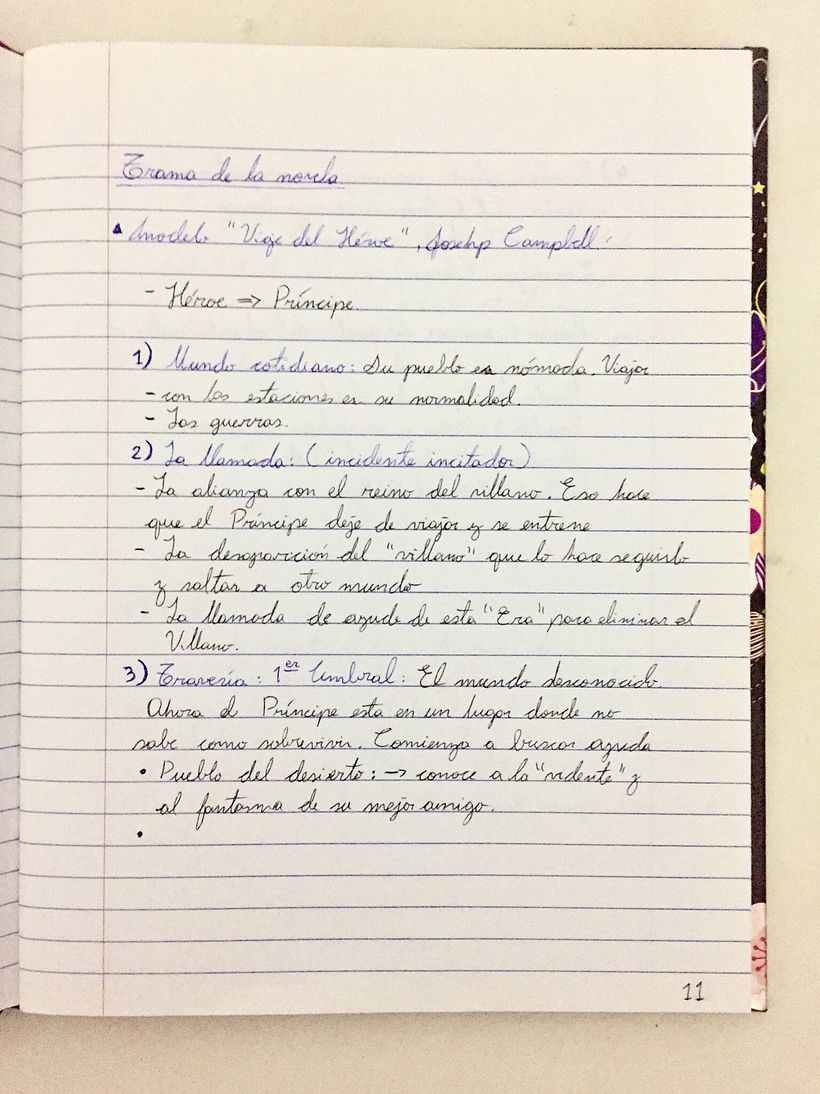 Trama de la novela
modelo "Viaje del Héroe", Josehp Campbell:
- Héroe => Príncipe.
1) Mundo cotidiano: Su pueblo es nómada. Viajar
- con las estaciones es su normalidad.
- Las guerras.
2) La llamada: (incidente incitador)
- La alianza con el reino del villano. Eso hace
que el Príncipe deje de viajar y se entrene
- La desaparición del "villano" que lo hace seguirlo
y saltar a otro mundo
- La llamada de ayuda de esta "Era" para eliminar al
Villano.
3) Travesía: 1er Umbral: El mundo desconocido.
Ahora el Príncipe esta en un lugar donde no
sabe como sobrevivir. Comienza a buscar ayuda
• Pueblo del desierto: -> conoce a la "vidente" y
al fantasma de su mejor amigo.
•
11